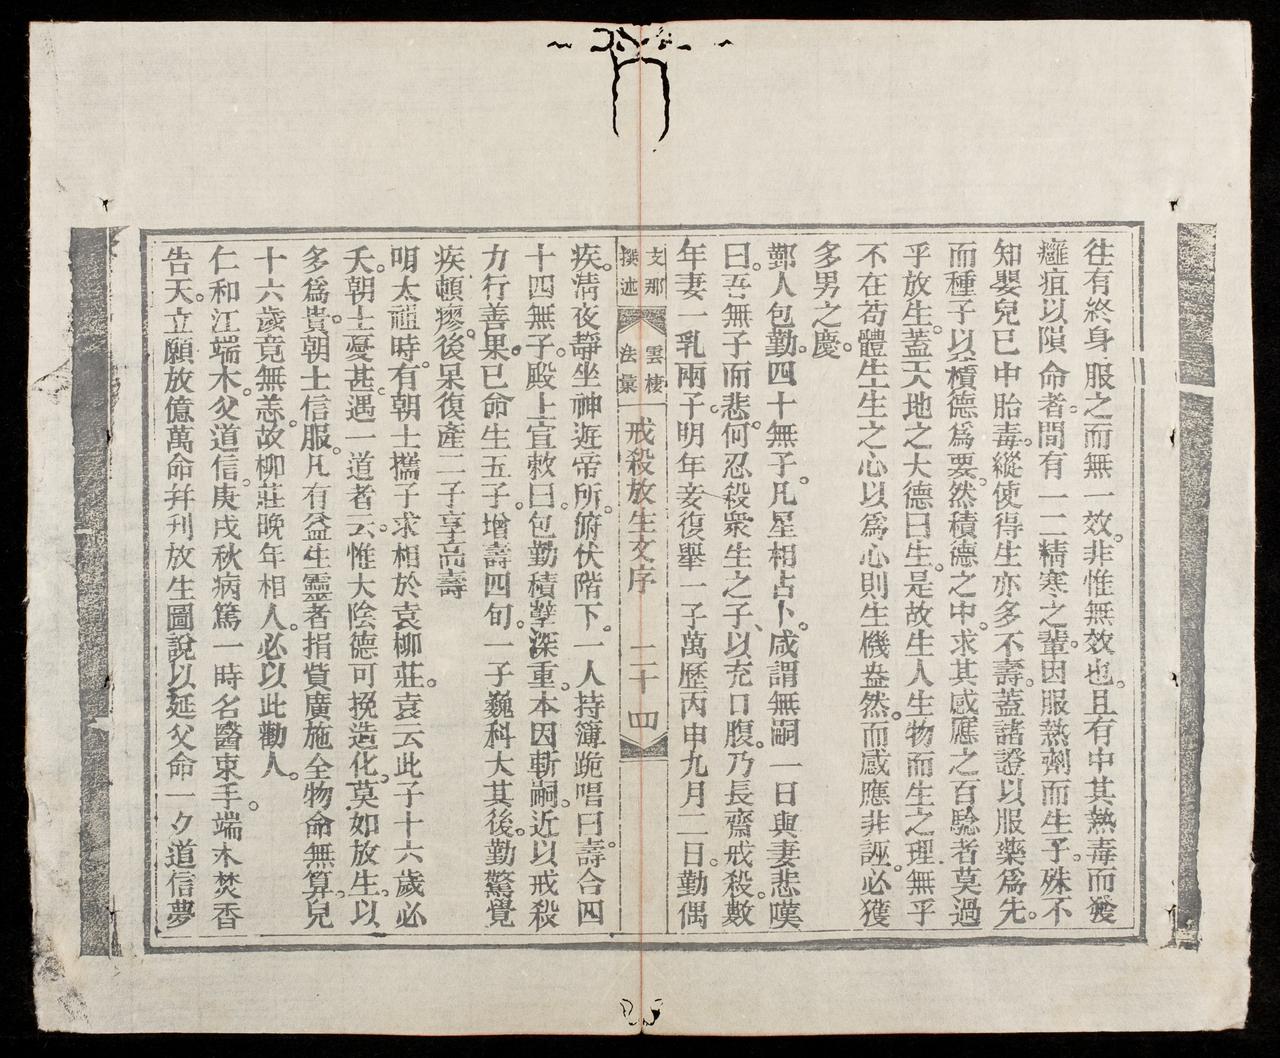 往有終身服之而無一效。非惟無效也。且有中其熱毒而發
癰疽以隕命者。間有一二精寒之輩。因服熱劑而生子。殊不
知嬰兒已中胎毒。縱使得生亦多不壽。蓋諸證以服藥爲先。
而種子以積德爲要。然積德之中。求其感應之百驗者莫過
乎放生。蓋天地之大德曰生。是故生人生物而生之理。無乎
不在苟體生生之心以爲心則生機盎然。而感應非誣。必獲
多男之慶。
鄞人包勤。四十無子。凡星相占卜。咸謂無嗣一日與妻悲嘆
曰。吾無子而悲。何忍殺衆生之子、以充口腹。乃長齋戒殺。數
年妻一乳兩子。明年妾復舉一子萬歷丙申九月二日。勤偶
支那
撰述
雲棲
法彙
戒殺放生文序
二十四
疾。清夜靜坐神遊帝所。俯伏階下。一人持簿跪唱曰。壽合四
十四無子。殿上宣敕曰。包勤積孽深重。本因斬嗣。近以戒殺
力行善果。已命生五子。增壽四旬。一子巍科大其後。勤驚覺
疾頓瘳。後果復產二子享高壽
明太祖時。有朝士攜子求相於袁柳莊。袁云此子十六歲必
夭。朝士憂甚。遇一道者云。惟大陰德可挽造化。莫如放生。以
多爲貴。朝士信服。凡有益生靈者捐貲廣施全物命無算。兒
十六歲竟無恙。故柳莊晚年相人。必以此勸人。
仁和江端木。父道信。庚戌秋病篤一時名醫束手。端木焚香
告天。立願放億萬命并刊放生圖說以延父命一夕道信夢